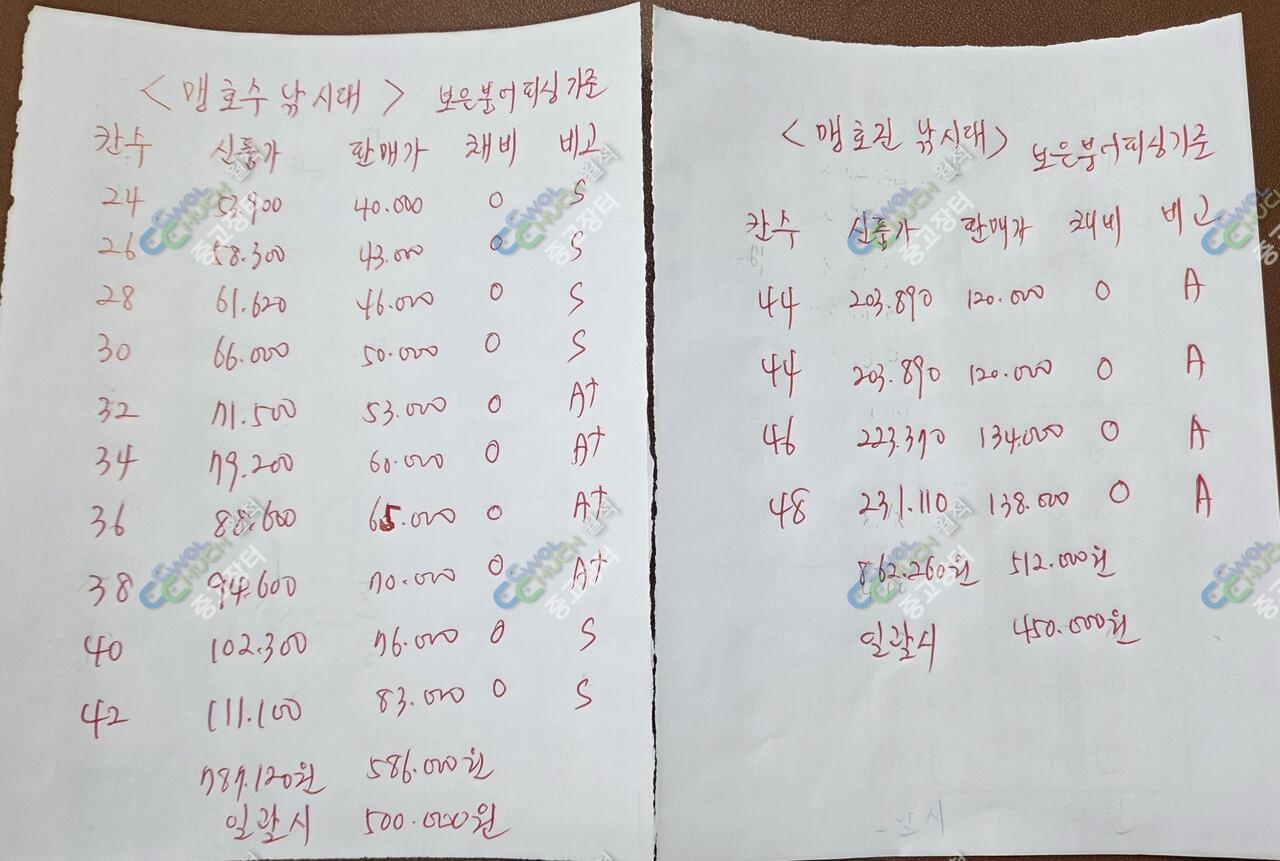 <맹호수 낚시대> 보은붕어피싱기준
칸수 신품가 판매가 채비 비고
24 53.900 40.000 0 S
26 58.300 43.000 0 S
28 61.620 46.000 0 S
30 66.000 50.000 0 S
32 71.500 53.000 0 A+
34 79.200 60.000 0 A+
36 88.600 65.000 0 A+
38 94.600 70.000 0 A+
40 102.300 76.000 0 S
42 111.100 83.000 0 S
787.120원 586.000원
일괄시 500.000원
<맹호진 낚시대> 보은붕어피싱기준
칸수 신품가 판매가 채비 비고
44 203.890 120.000 0 A
44 203.890 120.000 0 A
46 223.370 134.000 0 A
48 231.110 138.000 0 A
862.260원 512.000원
일괄시 450.000원
CWOL CHUCH 월척 중고장터